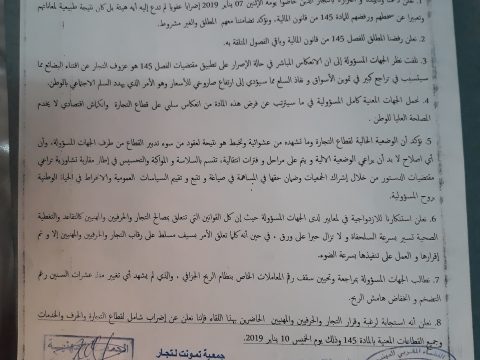 وتعبيرا عن سخطهم ورفضهم للمادة 145 من قانون المالية، ونؤكد تضامننا معهم المطلق والغير مشروط.
2. نعلن رفضنا المطلق للفصل 145 من قانون المالية وباقي الفصول المتعلقة به.
3. نلفت نظر الجهات المسؤولة إلى ان الانعكاس المباشر في حالة الإصرار على تطبيق مقتضيات الفصل 145 هو عزوف التجار عن اقتناء البضائع مما
سيتسبب في تراجع كبير في تموين الأسواق و نفاذ السلع مما سيؤدي إلى ارتفاع صاروخي للأسعار وهو الأمر الذي يهدد السلم الاجتماعي بالوطن.
4. نحمل الجهات المعنية كامل المسؤولية في ما سيترتب عن فرض هذه المادة من انعكاس سلبي على قطاع التجارة وانكماش اقتصادي لا يخدم
المصلحة العليا للوطن.
5. نؤكد أن الوضعية الحالية لقطاع التجارة وما تشهده من عشوائية وتخبط هو نتيجة لعقود من سوء تدبير القطاع من طرف الجهات المسؤولة، وأن
أي اصلاح لا بد أن يراعي الوضعية الآنية و يتم على مراحل و فترات انتقالية، تتسم بالسلاسة و المواكبة والتحسيس في إطار مقاربة تشاورية تراعي
مقتضيات الدستور من خلال إشراك الجمعيات وضمان حقها في المساهمة في صياغة و تتبع و تقييم السياسات العمومية والانخراط في الحياة الوطنية
روح المسؤولية.
6. نعلن استنكارنا للازدواجية في المعايير لدى الجهات المسؤولة حيث إن كل القوانين التي تتعلق بمصالح التجار والحرفيين والمهنيين كالتقاعد والتغطية
الصحية تسير بسرعة السلحفاة و لا تزال حبرا على ورق . في حين أنه كلما تعلق الأمر بسيف مسلط على رقاب التجار والحرفيين والمهنيين إلا و تم
إقرارها و العمل على تنفيذها بسرعة الضوء.
7. نطالب الجهات المسؤولة بمراجعة وتحيين سقف رقم المعاملات الخاص بنظام الربح الجزافي . والذي لم يشهد أي تغيير منذ عشرات السنين رغم
التضخم و انخفاض هامش الربح.
8. نعلن أنه استجابة لرغبة وقرار التجار والحرفيين والمهنيين الحاضرين بهذا اللقاء فإننا نعلن عن إضراب شامل لقطاع التجارة والحرف والخدمات
وجميع القطاعات المعنية بالمادة 145 وذلك يوم الخميس 10 يناير 2019.
جمعية تمونت لتجار